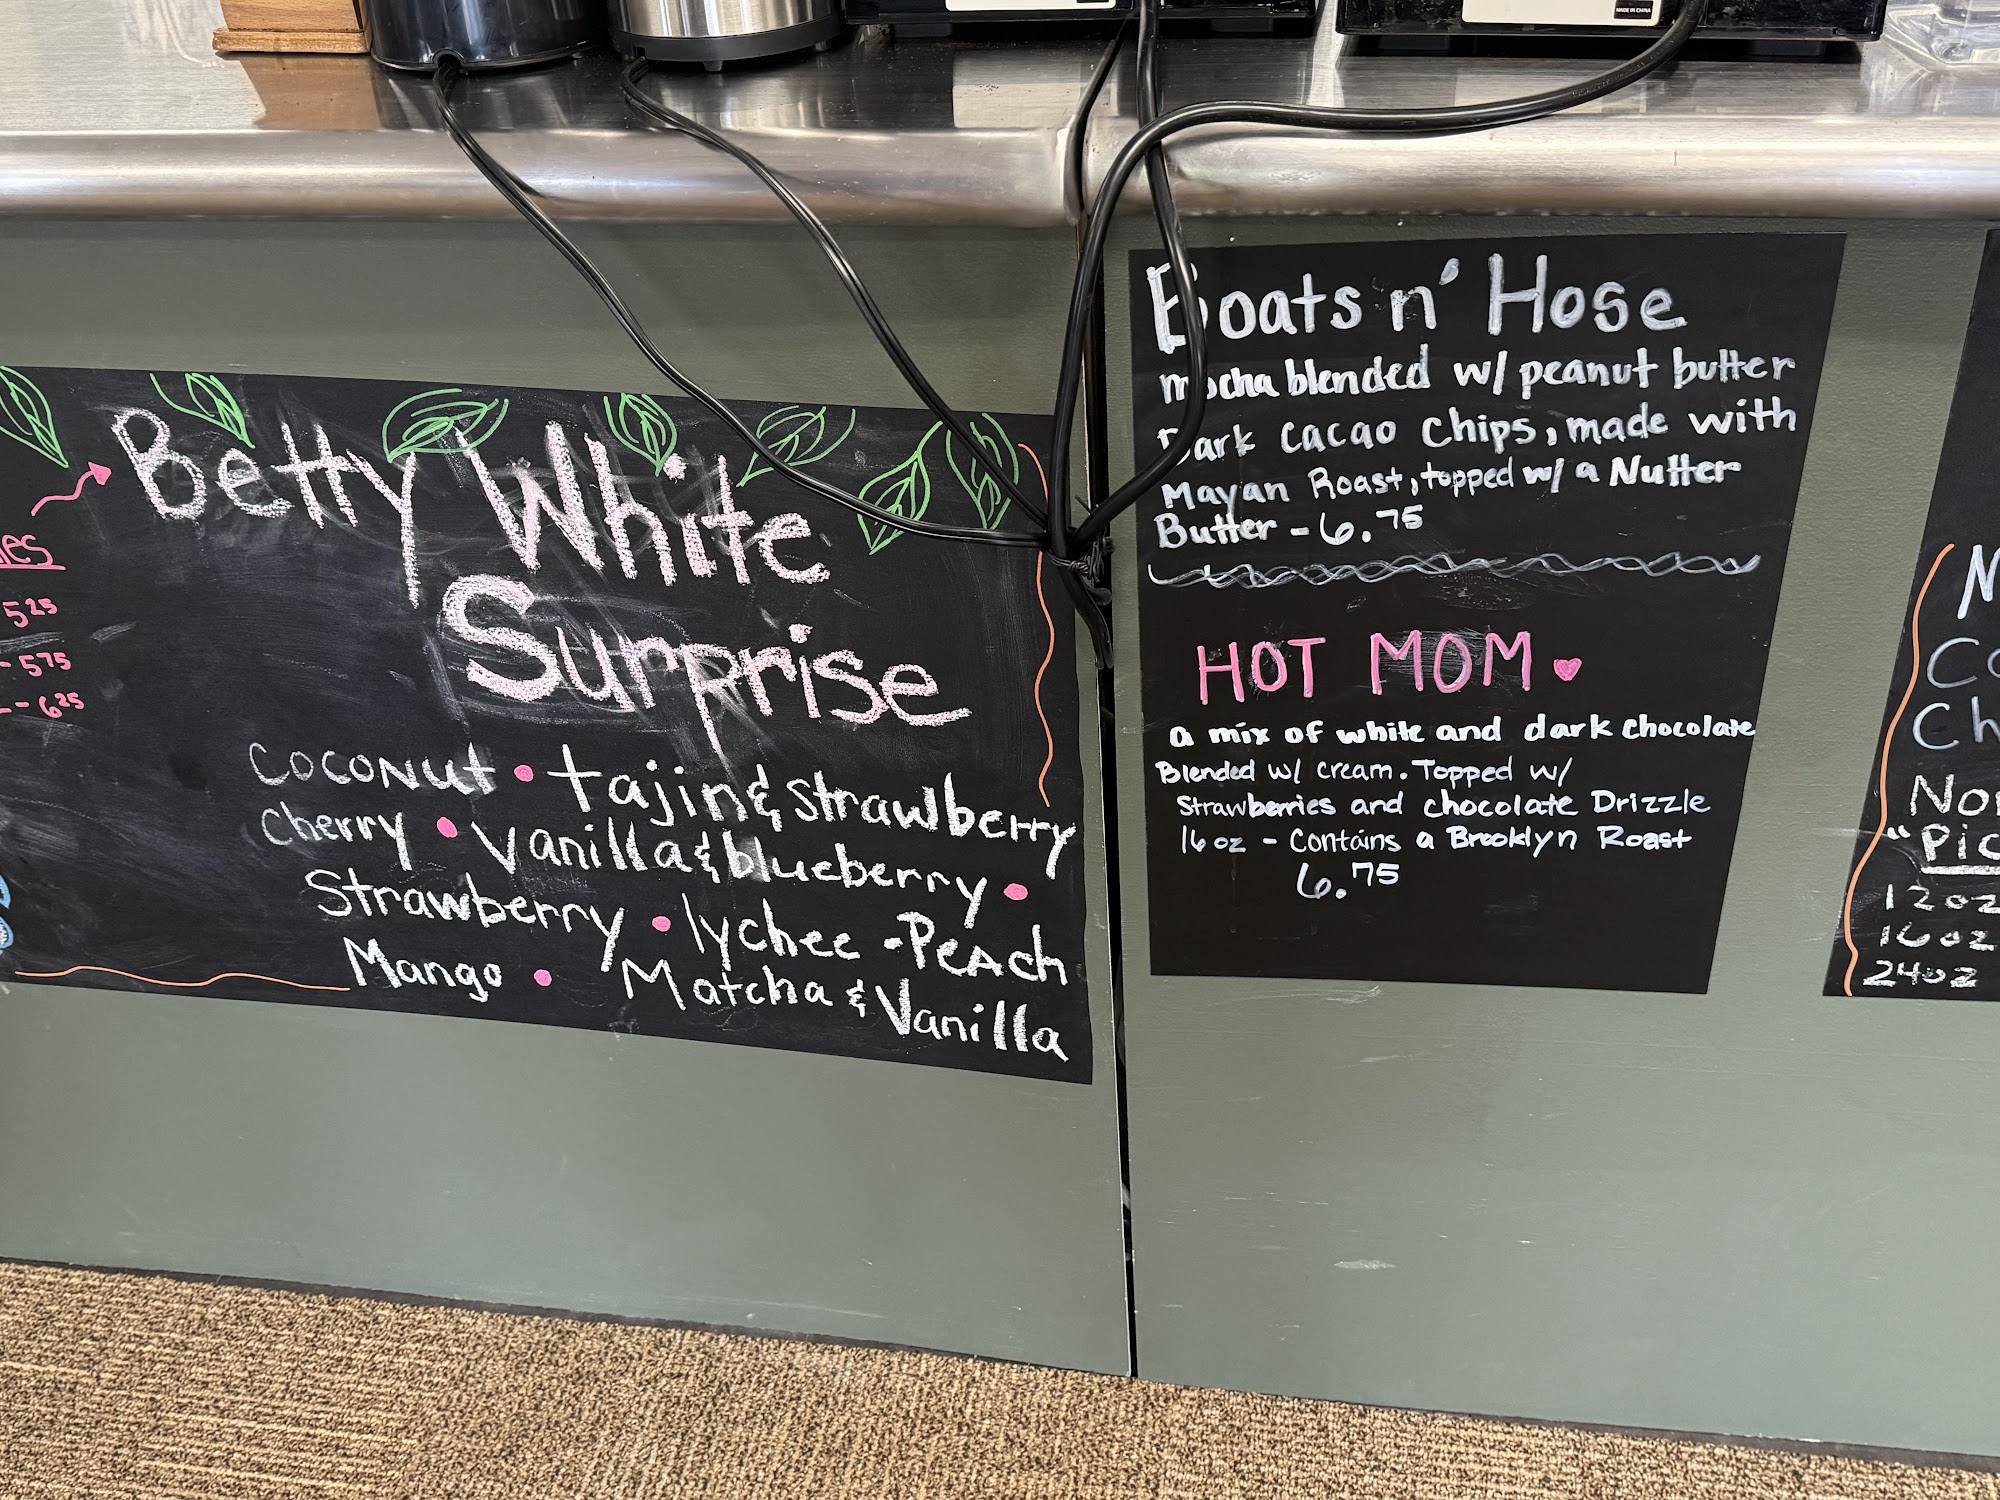 MADE IN CHINA
Betty White
Surprise
Coconut • tajin & strawlberry
Cherry • Vanilla & blueberry •
Strawberry • lychee - Peach
Mango • Matcha & Vanilla
5 25
- 5 75
- 6 25
Boats n' Hose
mocha blended w/ peanut butter
Dark cacao chips, made with
Mayan Roast, topped w/ a Nutter
Butter - 6.75
HOT MOM
a mix of white and dark chocolate
Blended w/ cream. Topped w/
Strawberries and chocolate Drizzle
16 oz - Contains a Brooklyn Roast
6.75
12oz
16oz
24oz